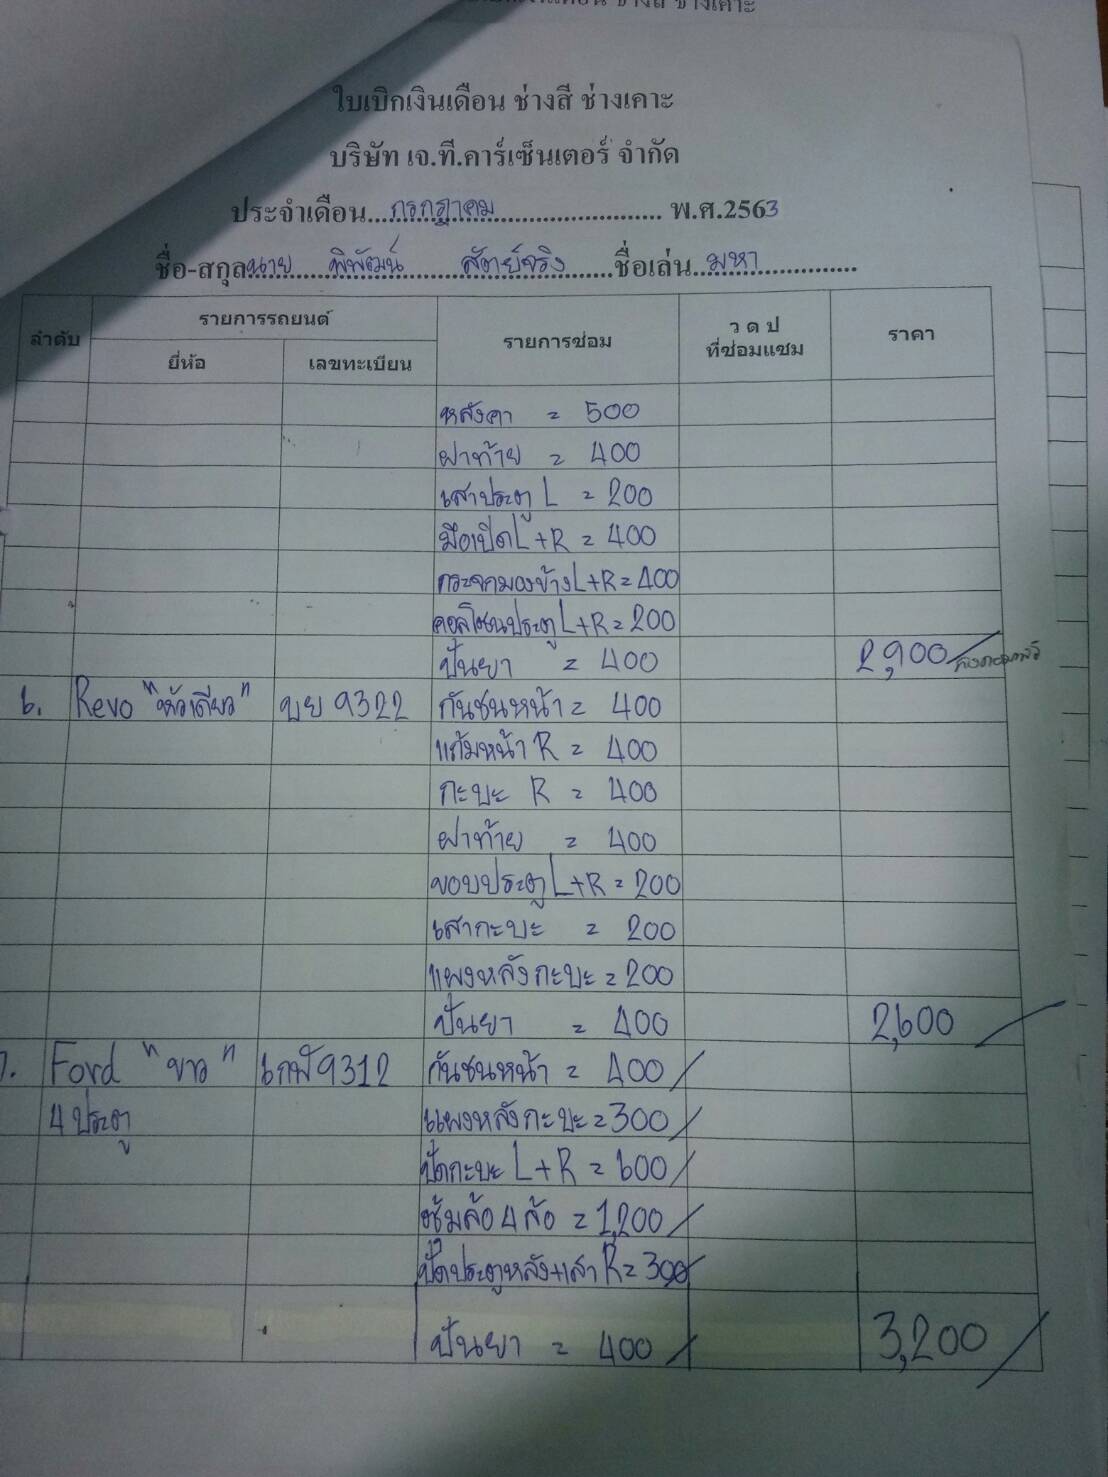 ใบเบิกเงินเดือน ช่างสี ช่างเคาะ
บริษัท เจ.ที.คาร์เซ็นเตอร์ จำกัด
ประจำเดือน...กรกฎาคม... พ.ศ.2563
ชื่อ-สกุล นาย พิพัฒน์ สัตย์จริง ชื่อเล่น มหา
ลำดับ รายการรถยนต์ รายการซ่อม ว ด ป ที่ซ่อมแซม ราคา
ยี่ห้อ เลขทะเบียน
หลังคา = 500
ฝาท้าย = 400
เสาประตู L = 200
มือเปิดL+R = 400
กระจกมองข้างL+R=400
คอลโซนประตูL+R=200
ปั่นยา = 400 2,900
6. Revo "หัวเดียว" บย 9322 กันชนหน้า = 400
แก้มหน้า R = 400
กะบะ R = 400
ฝาท้าย = 400
ขอบประตูL+R=200
เสากะบะ = 200
แผงหลังกะบะ=200
ปั่นยา = 400 2,600
7. Ford "ขาว" 6กฬ9312 กันชนหน้า = 400
4ประตู แผงหลังกะบะ=300
ปัดกะบะ L+R = 600
ซุ้มล้อ4ล้อ =1,200
ปัดประตูหลัง+เสา R=300
ปั่นยา = 400 3,200